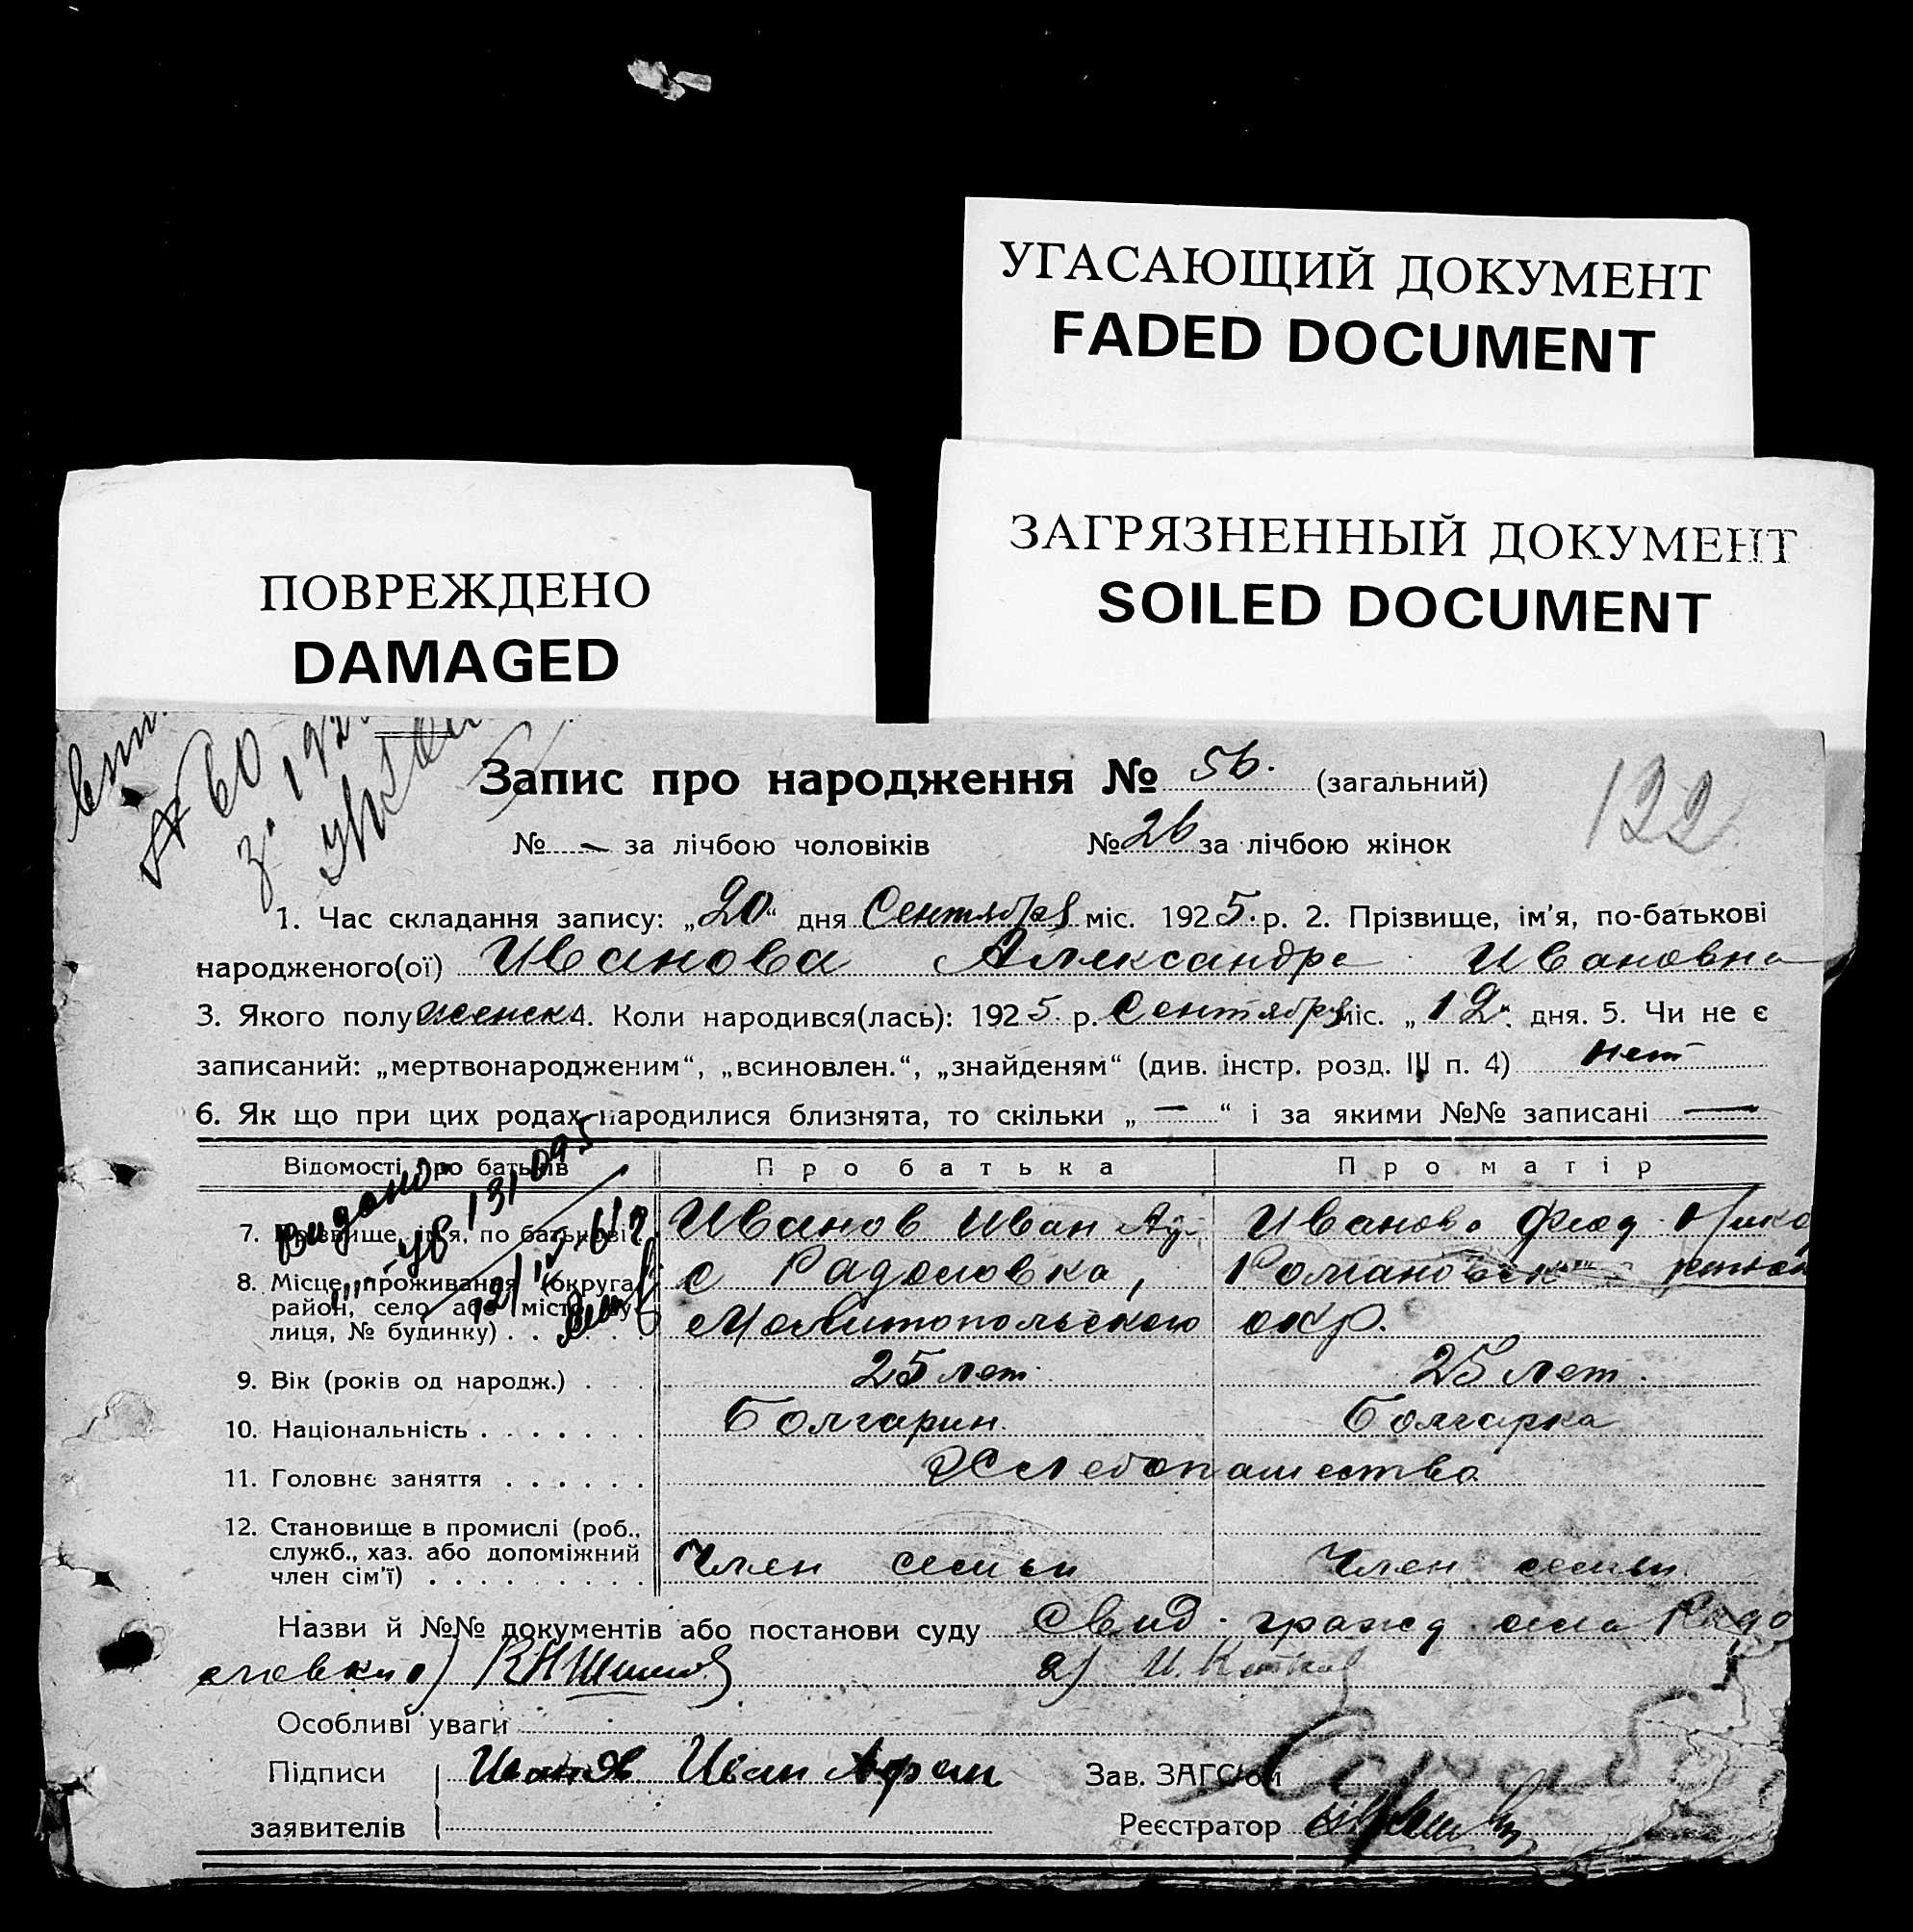 УГАСАЮЩИЙ ДОКУМЕНТ
FADED DOCUMENT
ЗАГРЯЗНЕННЫЙ ДОКУМЕНТ
SOILED DOCUMENT
ПОВРЕЖДЕНО
DAMAGED
Запис про народження № 56. (загальний)
122
№ — за лічбою чоловіків № 26 за лічбою жінок
1. Час складання запису: „20“ дня Сентября міс. 1925. р. 2. Прізвище, ім’я, по-батькові
народженого(ої) Иванова Александра Ивановна
3. Якого полу женск 4. Коли народився(лась): 1925 р. Сентября міс. „12“ дня. 5. Чи не є
записаний: „мертвонародженим“, „всиновлен.“, „знайденям“ (див. інстр. розд. III п. 4) нет
6. Як що при цих родах народилися близнята, то скільки „ — “ і за якими №№ записані —
Відомості про батьків Про батька Про матір
Видано
7. Прізвище, ім’я, по батькові Иванов Иван Иванова Феод
8. Місце проживання (округа, с Радоловка,
район, село або місто, ву-
лиця, № будинку) . . Мелитопольского окр.
9. Вік (років од народж.) . . . 25 лет 25 лет.
10. Національність . . . . . . . Болгарин. Болгарка
11. Головне заняття . . . . . . Хлебопашество
12. Становище в промислі (роб.,
служб., хаз. або допоміжний
член сім’ї) . . . . . . . . . Член семьи Член семьи
Назви й №№ документів або постанови суду Свид. гражд села Радо
ловки 1) 2) И.
Особливі уваги
Підписи Иванов Иван Афан Зав. ЗАГС’ом
заявителів Реєстратор